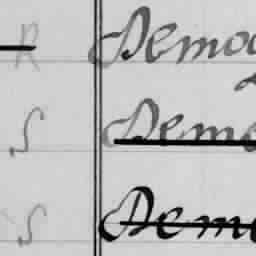 R Democ
S Demo
S Demo